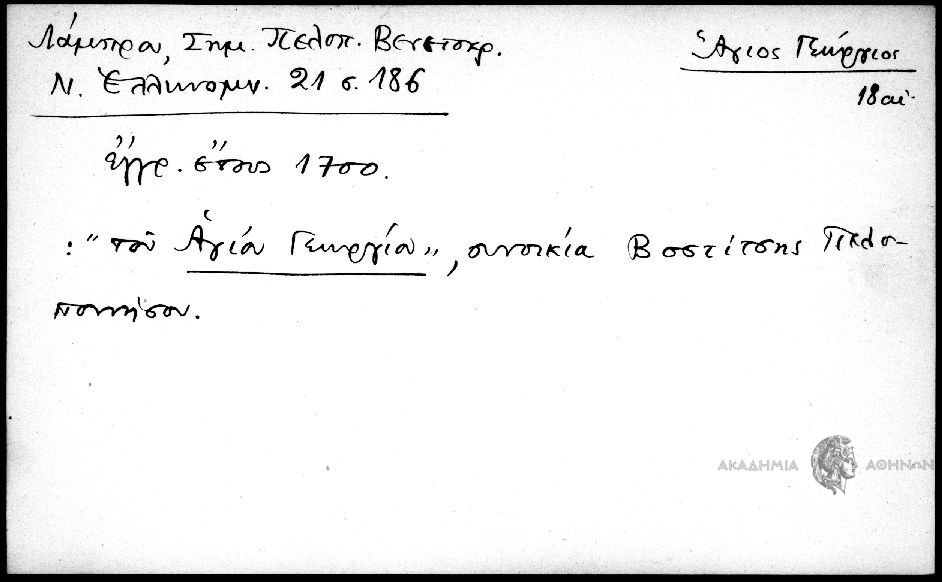 Λάμπρου, Σημ. Πελοπ. Βενετοκρ.
Ν. Ἑλληνομν. 21 σ. 186
Ἅγιος Γεώργιος
18 αἰ.
ἔγγρ. ἔτους 1700.
: "τοῦ Ἁγίου Γεωργίου", συνοικία Βοστίτσης Πελο-
ποννήσου.
ΑΚΑΔΗΜΙΑ ΑΘΗΝΩΝ